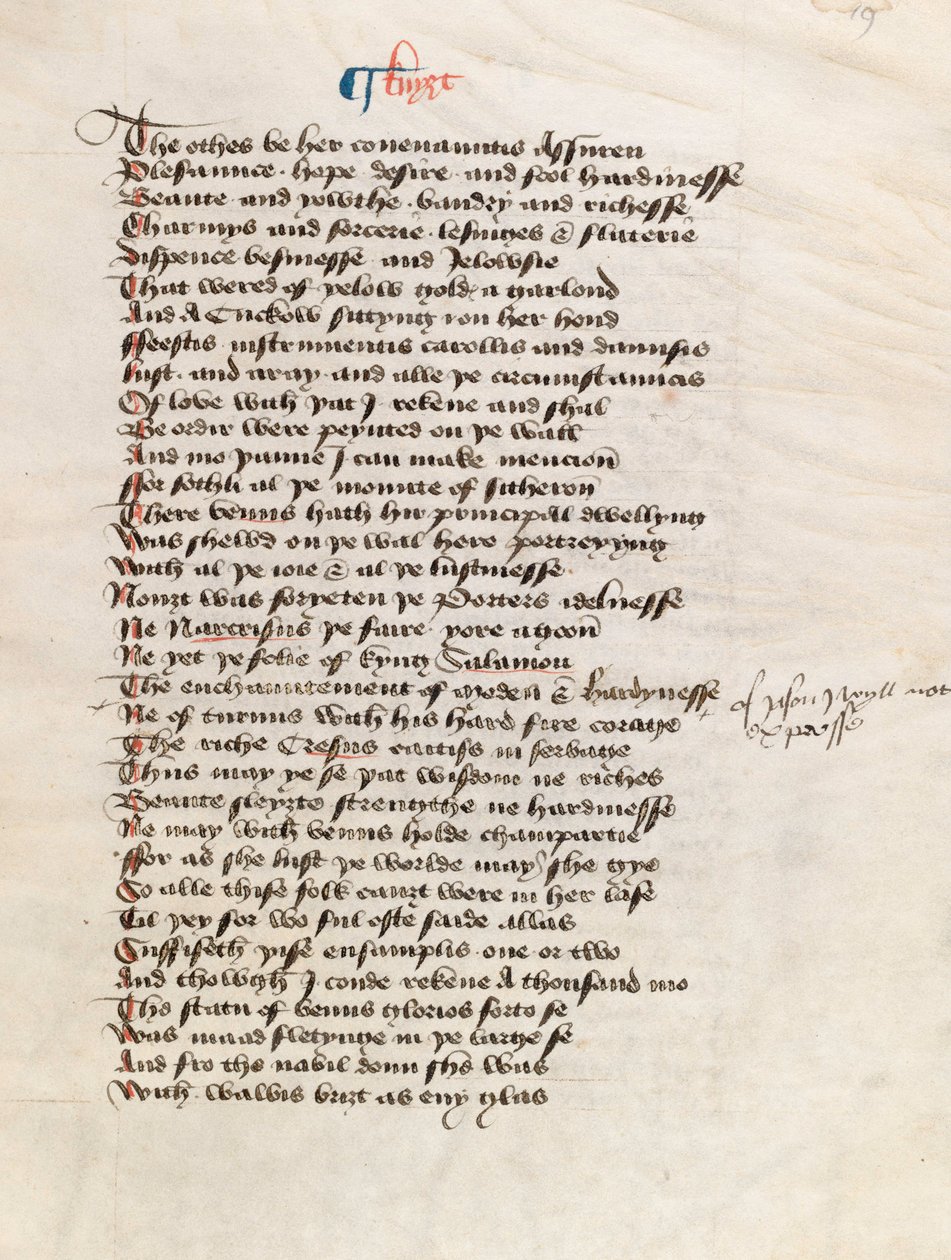 19
¶ knyȝt
The othes þe her conenauntis Assuren
Plesaunce · hope · desire · and fool hardinesse
Beaute · and yowthe · baudry and richesse
Charmys and sorcerie · lesinges & flaterie
Dispence besinesse · and Jelowsie
That wered of yelow gold · a garlond
And A Cuckow sittyng i on her hond
ffeestis instrumentis carollis and daunsis
lust · and aray · and alle þe circumstauncis
Of love with þat J · rekene and shal
Be ordir were peynted on þe wall
And mo þanne J can make mencion
ffor sothli al þe mounte of sitheron
There venus hath hir principall dwellyng
Was shewd on þe wal here portreyyng
With al þe ioie & al þe lustinesse
Nouȝt was foryeten þe Porters idelnesse
Ne Narcrisus þe faire · yore agoon
Ne yet þe folie of kyng Salamon
The enchauntement of medea & hardynesse
+ of Jason J wyll not expresse
Ne of turnus with his hard fire corage
The riche Cresus caitifs in servage
Thus may ye se þat wisdom ne riches
Beaute sleyȝte strengthe ne hardinesse
Ne may with venus holde champartie
ffor as she lust þe worlde may she gye
So alle thise folk cauȝt were in her lase
Til þey for wo ful ofte saide allas
Suffiseth þise ensamplis one or two
And thowgh J coude rekene A thousand mo
The statu of venus glorios forto se
Was maad fletynge in þe large se
And fro the navil doun she was
With wawis briȝt as eny glas